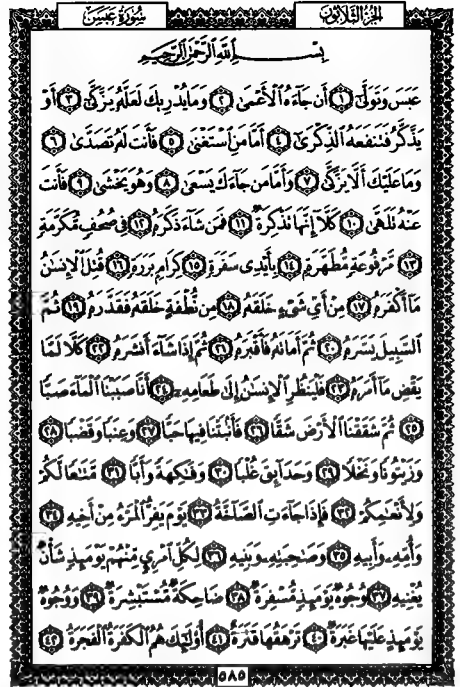 سُورَةُ عَبَسَ
الجُزْءُ الثَّلَاثُونَ
بِسْمِ ٱللَّهِ ٱلرَّحْمَٰنِ ٱلرَّحِيمِ
عَبَسَ وَتَوَلَّىٰٓ ١ أَن جَآءَهُ ٱلْأَعْمَىٰ ٢ وَمَا يُدْرِيكَ لَعَلَّهُۥ يَزَّكَّىٰٓ ٣ أَوْ
يَذَّكَّرُ فَتَنفَعَهُ ٱلذِّكْرَىٰٓ ٤ أَمَّا مَنِ ٱسْتَغْنَىٰ ٥ فَأَنتَ لَهُۥ تَصَدَّىٰ ٦
وَمَا عَلَيْكَ أَلَّا يَزَّكَّىٰ ٧ وَأَمَّا مَن جَآءَكَ يَسْعَىٰ ٨ وَهُوَ يَخْشَىٰ ٩ فَأَنتَ
عَنْهُ تَلَهَّىٰ ١٠ كَلَّآ إِنَّهَا تَذْكِرَةٌ ١١ فَمَن شَآءَ ذَكَرَهُۥ ١٢ فِى صُحُفٍ مُّكَرَّمَةٍ
١٣ مَّرْفُوعَةٍ مُّطَهَّرَةٍۭ ١٤ بِأَيْدِى سَفَرَةٍ ١٥ كِرَامٍۭ بَرَرَةٍ ١٦ قُتِلَ ٱلْإِنسَٰنُ
مَآ أَكْفَرَهُۥ ١٧ مِنْ أَىِّ شَىْءٍ خَلَقَهُۥ ١٨ مِن نُّطْفَةٍ خَلَقَهُۥ فَقَدَّرَهُۥ ١٩ ثُمَّ
ٱلسَّبِيلَ يَسَّرَهُۥ ٢٠ ثُمَّ أَمَاتَهُۥ فَأَقْبَرَهُۥ ٢١ ثُمَّ إِذَا شَآءَ أَنشَرَهُۥ ٢٢ كَلَّا لَمَّا
يَقْضِ مَآ أَمَرَهُۥ ٢٣ فَلْيَنظُرِ ٱلْإِنسَٰنُ إِلَىٰ طَعَامِهِۦٓ ٢٤ أَنَّا صَبَبْنَا ٱلْمَآءَ صَبًّا
٢٥ ثُمَّ شَقَقْنَا ٱلْأَرْضَ شَقًّا ٢٦ فَأَنۢبَتْنَا فِيهَا حَبًّا ٢٧ وَعِنَبًا وَقَضْبًا ٢٨
وَزَيْتُونًا وَنَخْلًا ٢٩ وَحَدَآئِقَ غُلْبًا ٣٠ وَفَٰكِهَةً وَأَبًّا ٣١ مَّتَٰعًا لَّكُمْ
وَلِأَنْعَٰمِكُمْ ٣٢ فَإِذَا جَآءَتِ ٱلصَّآخَّةُ ٣٣ يَوْمَ يَفِرُّ ٱلْمَرْءُ مِنْ أَخِيهِ ٣٤
وَأُمِّهِۦ وَأَبِيهِ ٣٥ وَصَٰحِبَتِهِۦ وَبَنِيهِ ٣٦ لِكُلِّ ٱمْرِئٍ مِّنْهُمْ يَوْمَئِذٍ شَأْنٌ
يُغْنِيهِ ٣٧ وُجُوهٌ يَوْمَئِذٍ مُّسْفِرَةٌ ٣٨ ضَاحِكَةٌ مُّسْتَبْشِرَةٌ ٣٩ وَوُجُوهٌ
يَوْمَئِذٍ عَلَيْهَا غَبَرَةٌ ٤٠ تَرْهَقُهَا قَتَرَةٌ ٤١ أُو۟لَٰٓئِكَ هُمُ ٱلْكَفَرَةُ ٱلْفَجَرَةُ ٤٢
٥٨٥